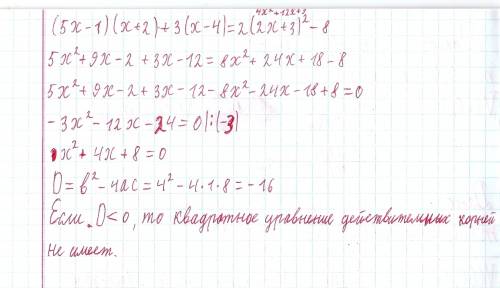 4x²+12x+9
(5x-1)(x+2)+3(x-4)=2(2x+3)²-8
5x²+9x-2+3x-12=8x²+24x+18-8
5x²+9x-2+3x-12-8x²-24x-18+8=0
-3x²-12x-24=0|:(-3)
x²+4x+8=0
D=b²-4ac=4²-4·1·8=-16
Если D<0, то квадратное уравнение действительных корней
не имеет.